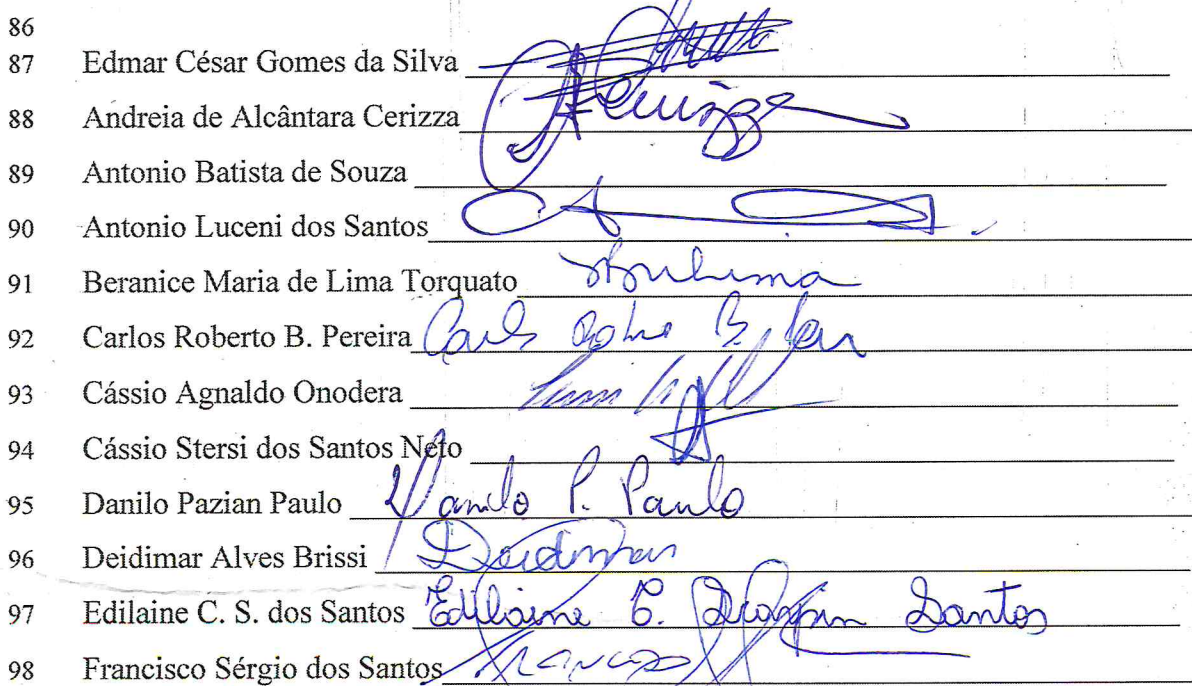 86
87 Edmar César Gomes da Silva
88 Andreia de Alcântara Cerizza
89 Antonio Batista de Souza
90 Antonio Luceni dos Santos
91 Beranice Maria de Lima Torquato
92 Carlos Roberto B. Pereira
93 Cássio Agnaldo Onodera
94 Cássio Stersi dos Santos Neto
95 Danilo Pazian Paulo Danilo P. Paulo
96 Deidimar Alves Brissi Deidimar
97 Edilaine C. S. dos Santos Edilaine C. Santos
98 Francisco Sérgio dos Santos Francisco